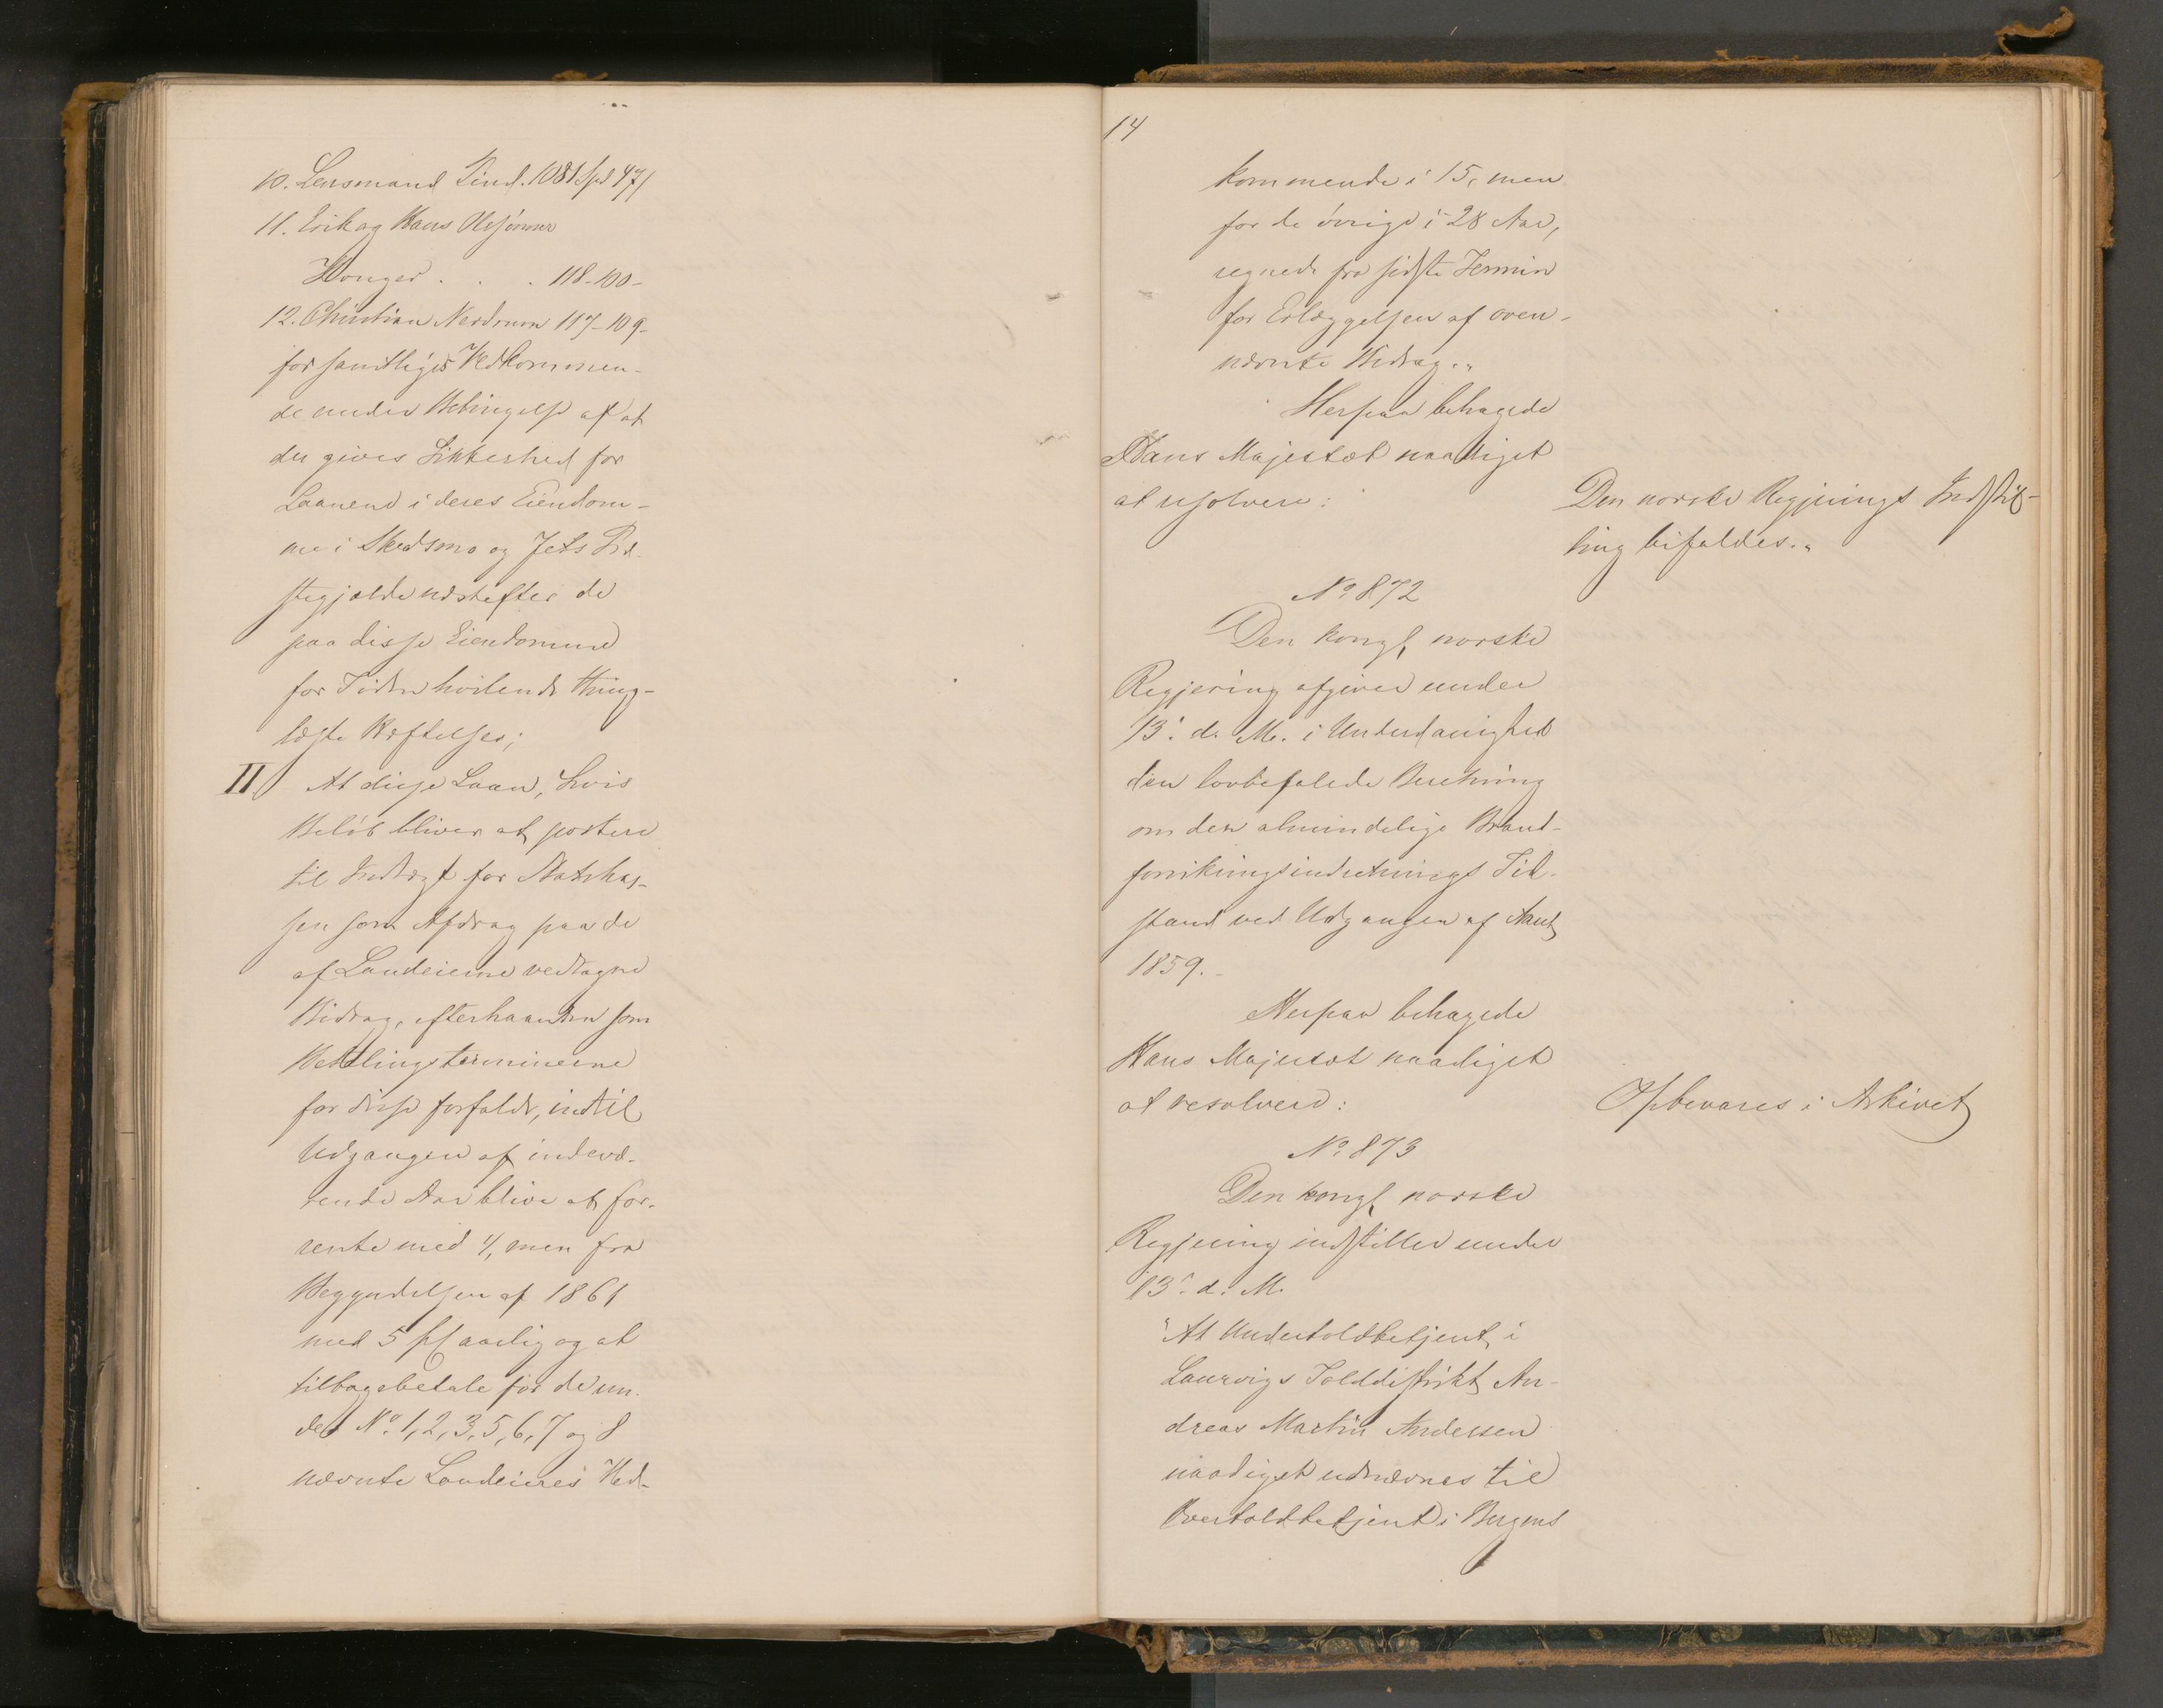 10. Lensmand Lind. 1081 Spd 47/
11. Erik og Hans Olssønner
Hønger . . . 118-100-
12. Christian Nerdrum 117-109-
for samtliges Vedkommen-
de under Betingelse af at
der gives Sikkerhed for
Laanene i deres Eiendom-
me i Skedsmo og Fets Præ-
stegjelde næstefter de
paa disse Eiendomme
for Tiden hvilende thing-
læste Hæftelser;
II At disse Laan, hvis
Beløb bliver at postere
til Indtægt for Statskas-
sen som Afdrag paa de
af Landeierne vedtagne
Bidrag, efterhaanden som
Betalingsterminerne
for disse forfalde, indtil
Udgangen af indevæ-
rende Aar blive at for-
rente med 4, men fra
Begyndelsen af 1861
med 5 pCt aarlig og at
tilbagebetale for de un-
der No. 1, 2, 3, 5, 6, 7 og 8
nævnte Landeieres Ved-
14
kommende i 15, men
for de øvrige i 28 Aar,
regnede fra sidste Termin
for Erlæggelsen af oven-
nævnte Bidrag."
Herpaa behagede
Hans Majestæt naadigst
at resolvere:
Den norske Regjerings Indstil-
ling bifaldes."
No. 872
Den kongl. norske
Regjering afgiver under
13. d. M. i Underdanighed
den lovbefalede Beretning
om den almindelige Brand-
forsikringsindretnings Til-
stand ved Udgangen af Aaret
1859.-
Herpaa behagede
Hans Majestæt naadigst
at resolvere:
Opbevares i Arkivet
No. 873
Den kongl. norske
Regjering indstiller under
13. d. M.
"At Undertoldbetjent i
Laurvigs Tolddistrikt An-
dreas Martin Andersen
naadigst udnævnes til
Overtoldbetjent i Bergens